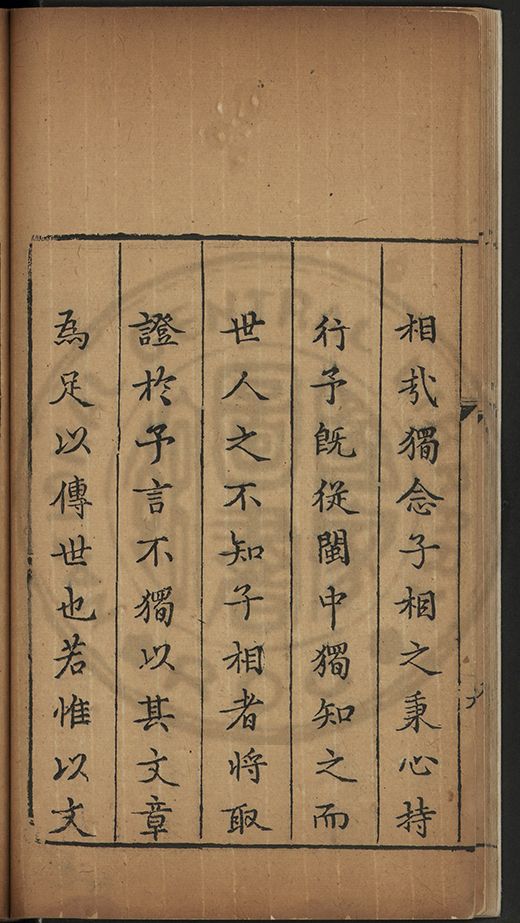 相㢤獨念子相之秉心持
行予既從閩中獨知之而
世人之不知子相者将取
證於予言不獨以其文章
為足以傳世也若惟以文